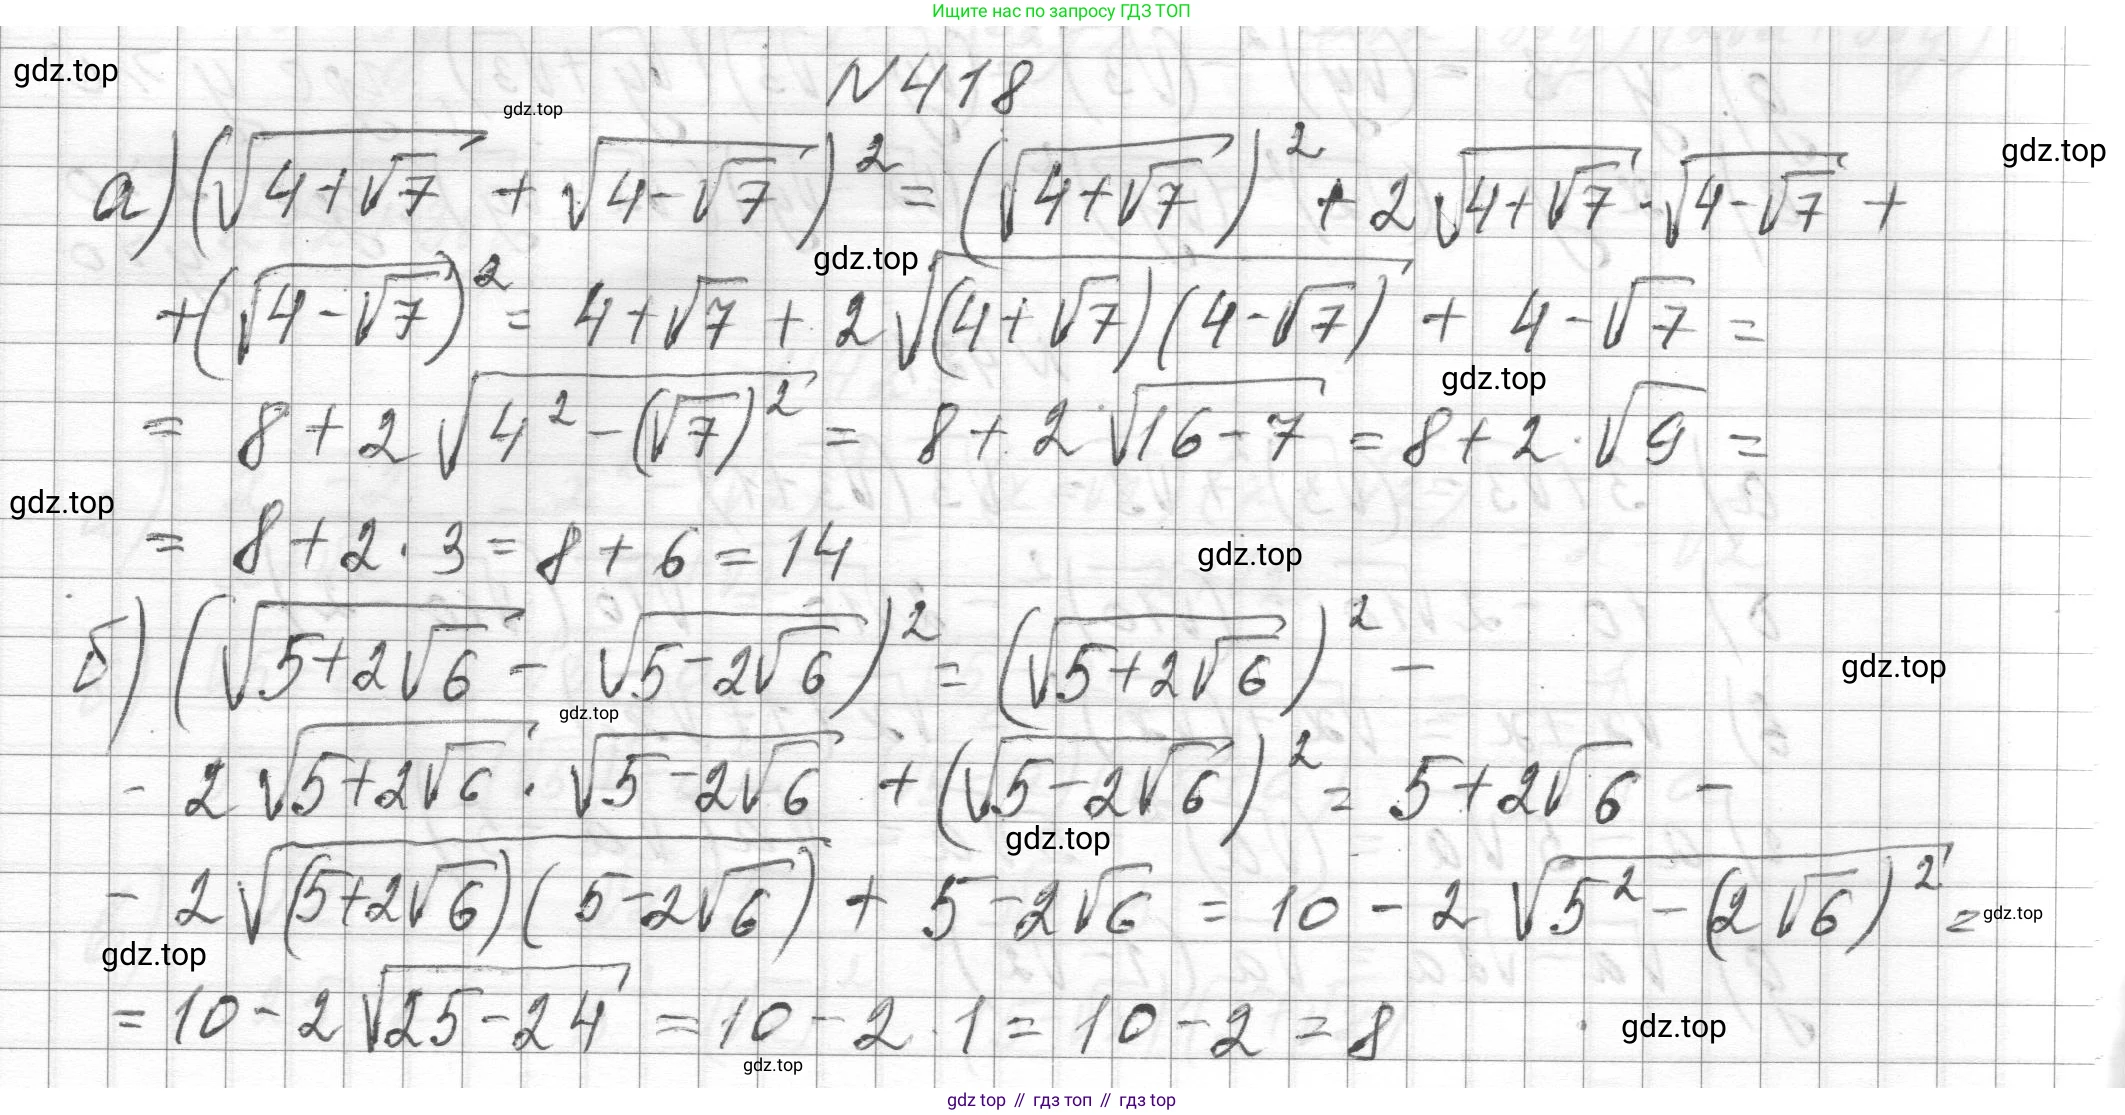 Ищите нас по запросу ГДЗ ТОП
gdz.top
N418
gdz.top
gdz.top
а) (√(4+√7) + √(4-√7))² = (√(4+√7))² + 2√(4+√7) · √(4-√7) +
gdz.top
+(√(4-√7))² = 4+√7 + 2√((4+√7)(4-√7)) + 4-√7 =
gdz.top
= 8+2√(4²-(√7)²) = 8+2√(16-7) = 8+2·√9 =
gdz.top
= 8+2·3=8+6=14
gdz.top
б) (√(5+2√6) - √(5-2√6))² = (√(5+2√6))² -
gdz.top
gdz.top
- 2√(5+2√6) · √(5-2√6) + (√(5-2√6))² = 5+2√6 -
gdz.top
- 2√((5+2√6)(5-2√6)) + 5-2√6 = 10-2√(5²-(2√6)²) =
gdz.top
gdz.top
= 10-2√(25-24) = 10-2·1=10-2=8
gdz.top
gdz.top
gdz top // гдз топ // гдз top